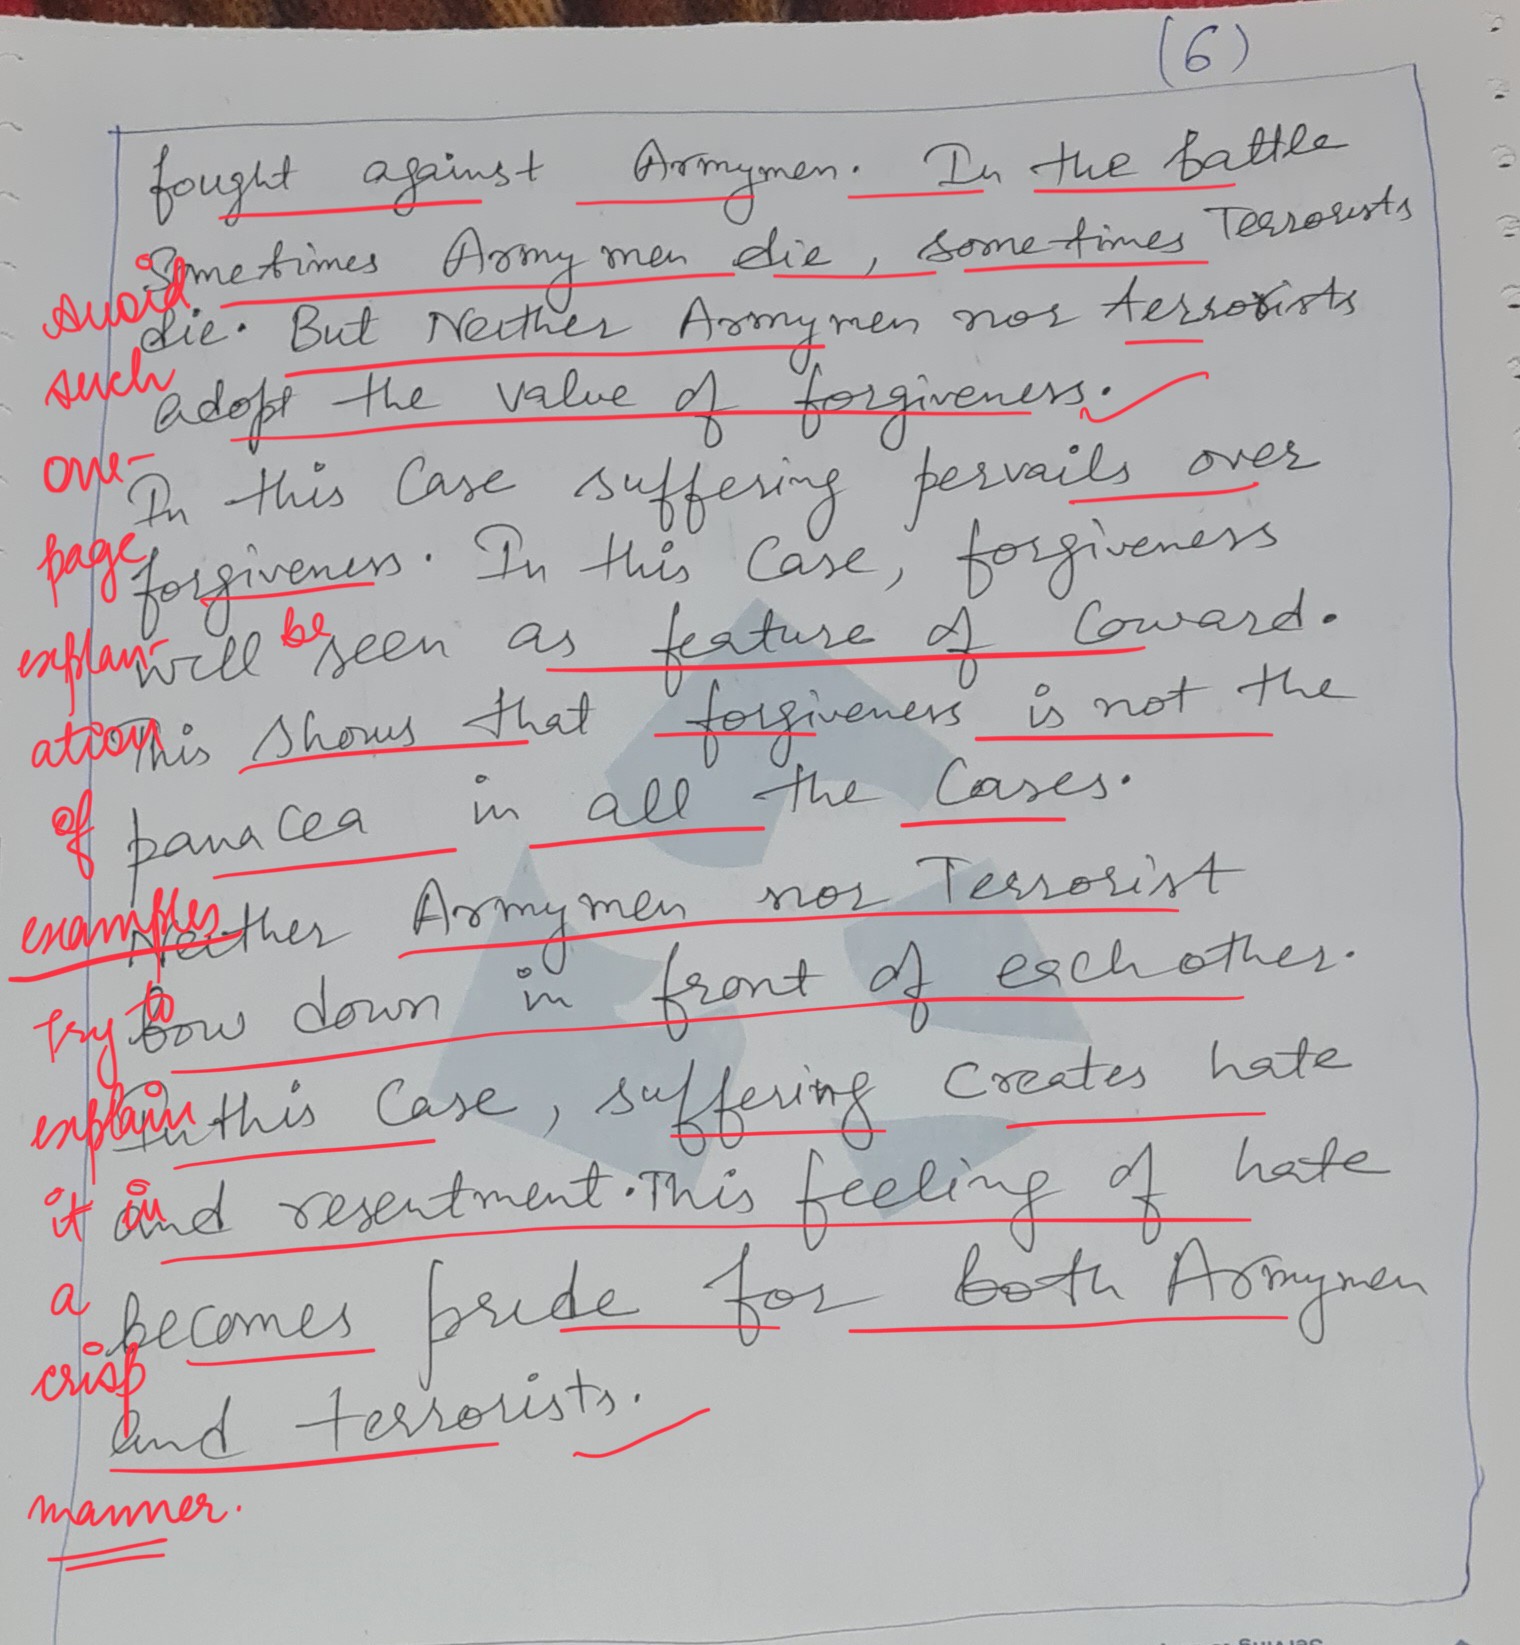 (6)
fought against Armymen. In the battle
Sometimes Army men die, sometimes Terrorists
die. But Neither Armymen nor terrorists
adopt the value of forgiveness.
In this Case suffering pervails over
forgiveness. In this Case, forgiveness
will be seen as feature of Coward.
This shows that forgiveness is not the
panacea in all the Cases.
Neither Armymen nor Terrorist
bow down in front of each other.
In this Case, suffering Creates hate
and resentment. This feeling of hate
becomes pride for both Armymen
and terrorists.
Avoid
such
one-
page
explan-
ation
of
examples
Try to
explain
it in
a
crisp
manner.